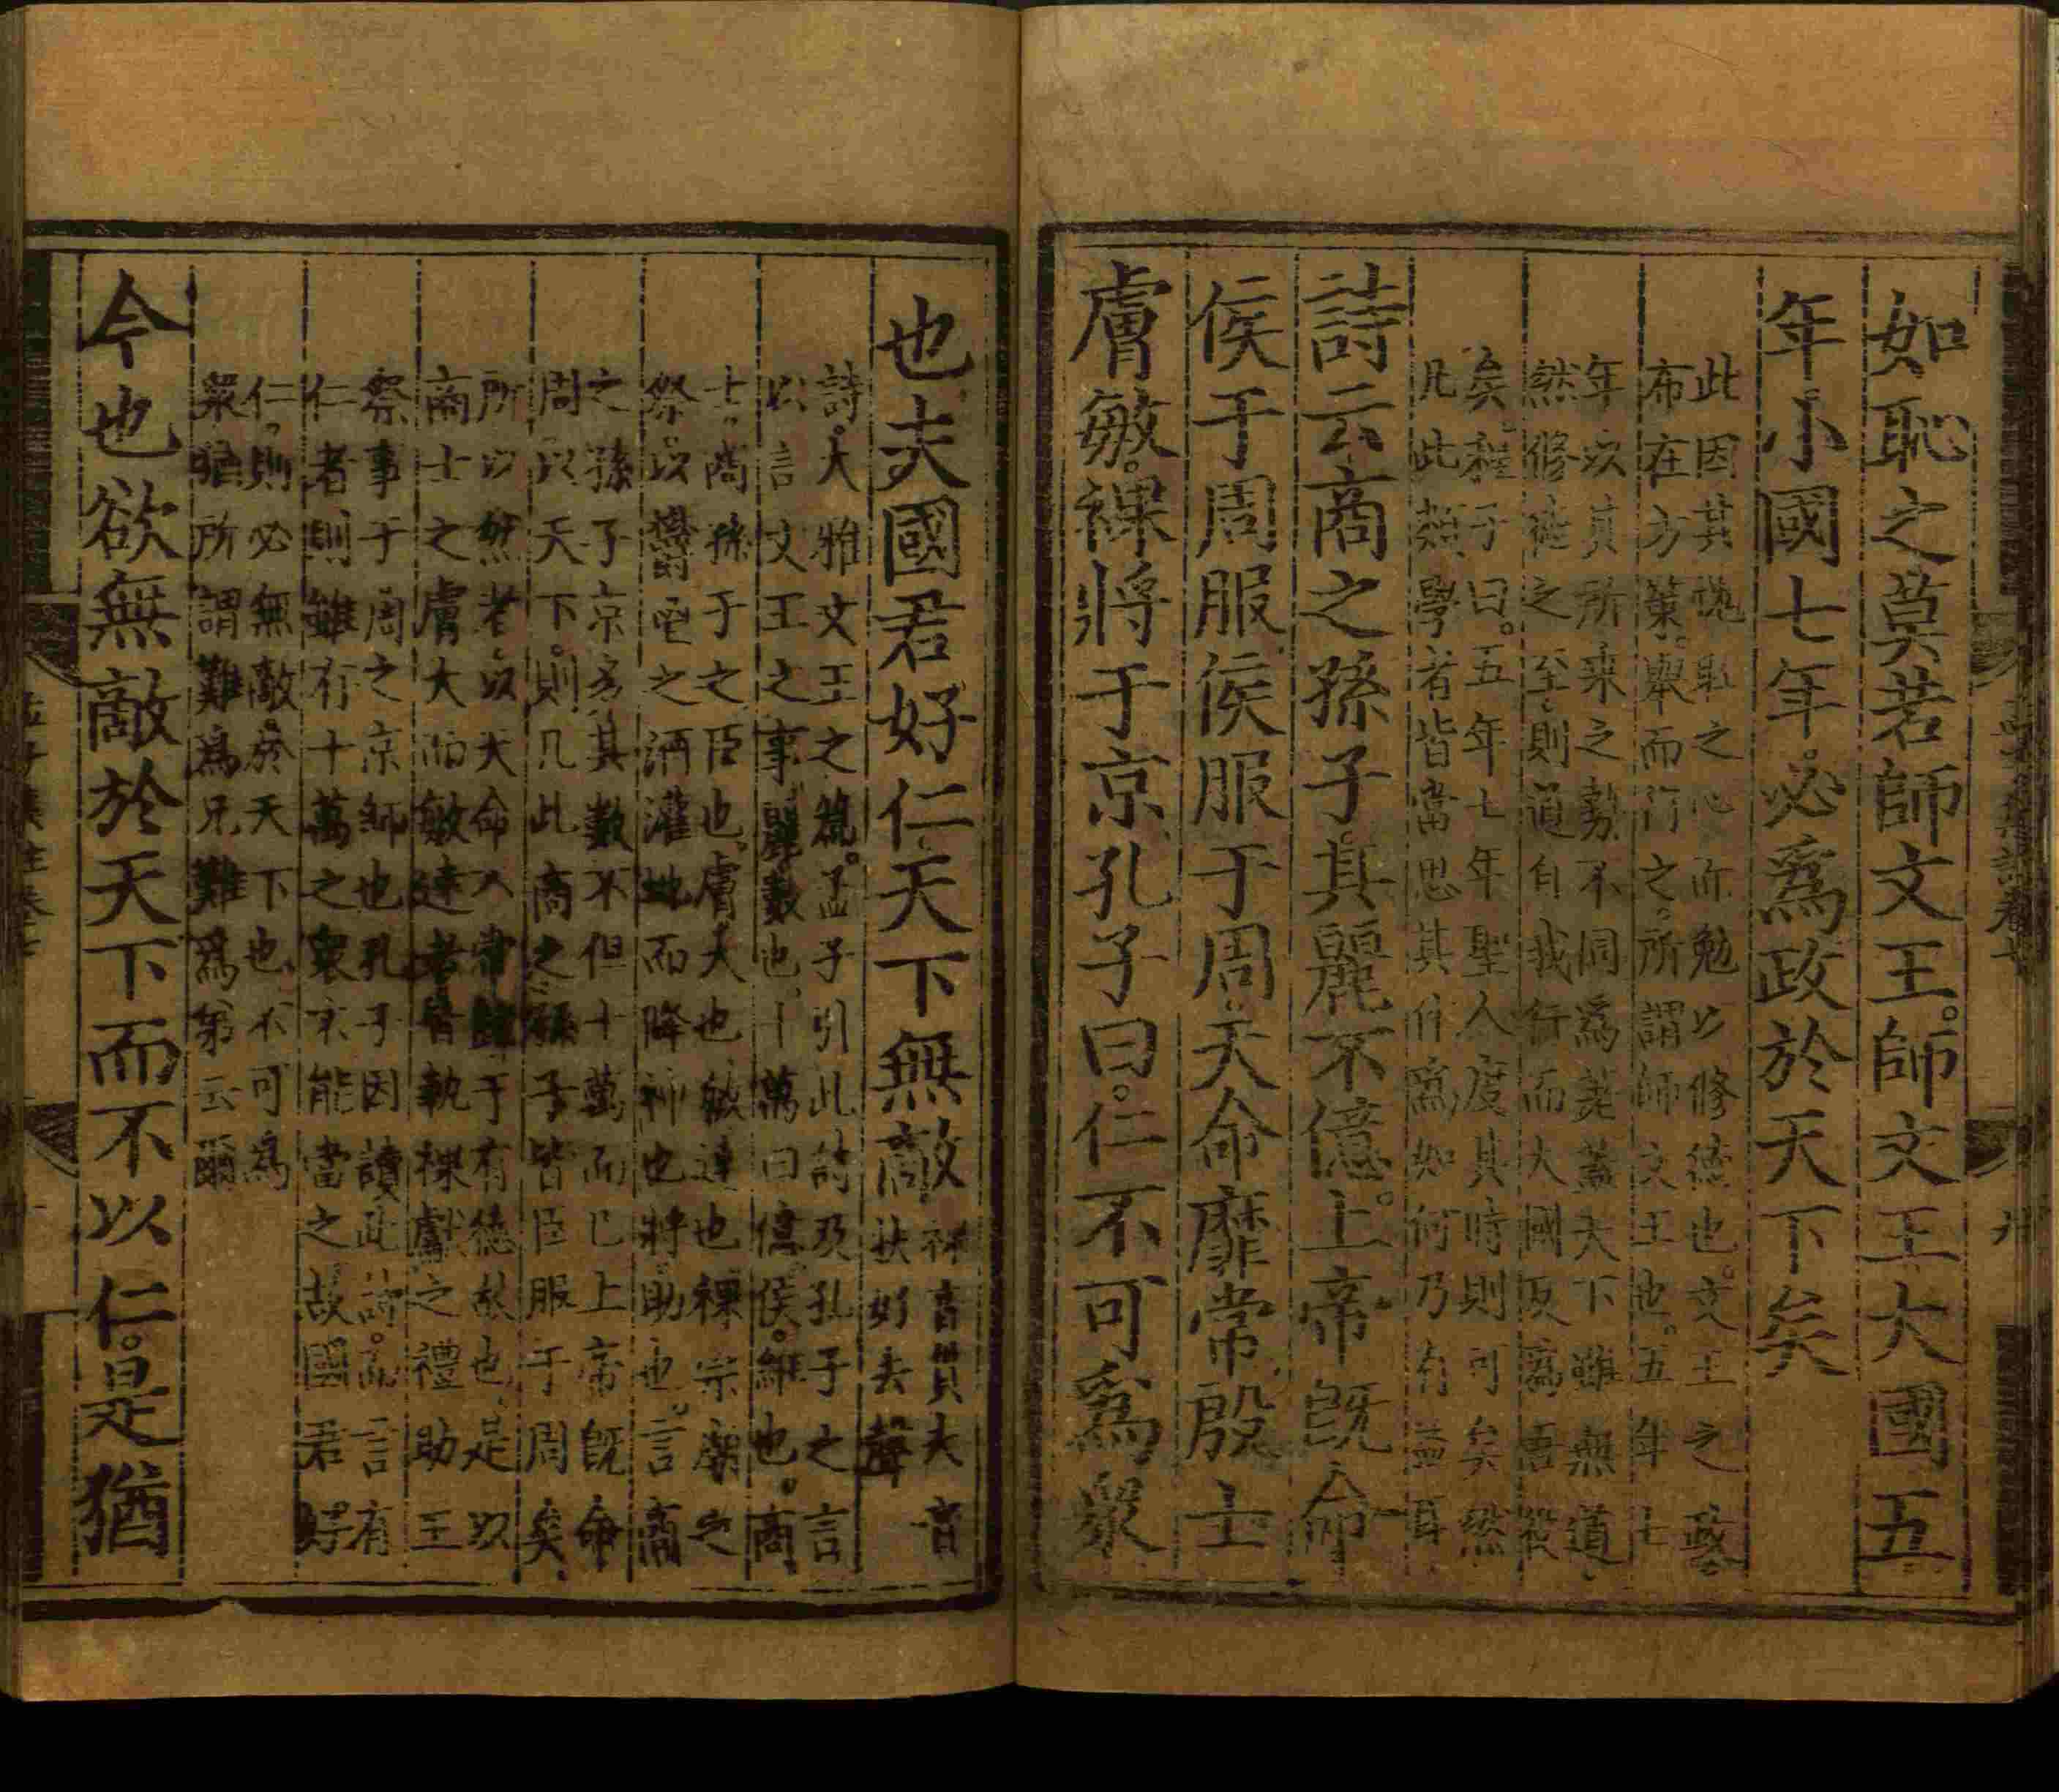 如恥之莫若師文王師文王大國五
年小國七年必爲政於天下矣
此因其愧恥之心而勉以修德也文王之政
布在方策舉而行之所謂師文王也五年七
年以其所乘之勢不同爲差蓋天下雖無道
然修德之至則道自我行而大國反爲吾役
矣程子曰五年七年聖人度其時則可矣然
凡此類學者皆當思其作爲如何乃有益耳
詩云商之孫子其麗不億上帝旣命
侯于周服侯服于周天命靡常殷士
膚敏祼將于京孔子曰仁不可爲衆
也夫國君好仁天下無敵
祼音貫夫音
扶好去聲
詩大雅文王之篇孟子引此詩及孔子之言
以言文王之事麗數也十萬曰億侯維也商
士商孫子之臣也膚大也敏達也祼宗廟之
祭以鬱鬯之酒灌地而降神也將助也言商
之孫子衆多其數不但十萬而已上帝旣命
周以天下則凡此商之孫子皆臣服于周矣
所以然者以天命不常歸于有德故也是以
商士之膚大而敏達者皆執祼獻之禮助王
祭事于周之京師也孔子因讀此詩而言有
仁者則雖有十萬之衆不能當之故國君好
仁則必無敵於天下也不可爲
衆猶所謂難爲兄難爲弟云爾
今也欲無敵於天下而不以仁是猶